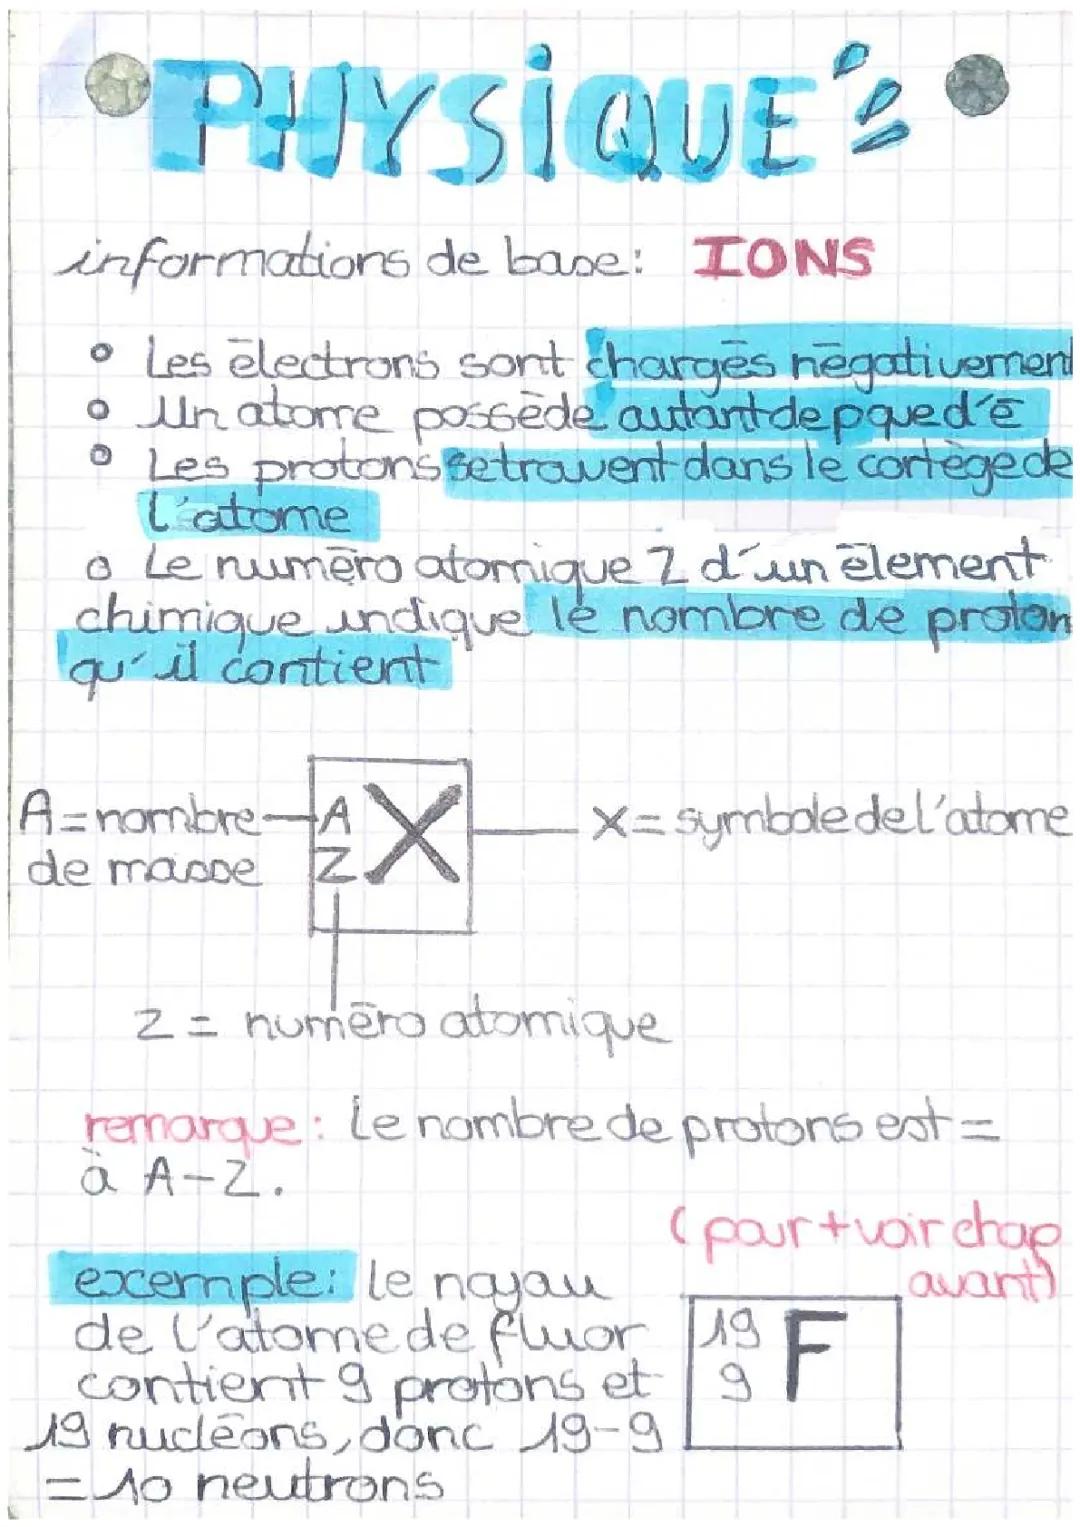 PHYSIQUE
informations de base: IONS
• Les électrons sont chargés négativement
• Un atome possède autant de p que d'é
• Les protons se trouvent dans le cortège de
l'atome
• Le numéro atomique Z d'un élement
chimique indique le nombre de proton
qu'il contient
A = nombre
de masse
A
Z
X
X = symbole de l'atome
Z = numéro atomique
remarque: Le nombre de protons est =
à A-Z.
(pour + voir chap
avant)
exemple: le noyau
de l'atome de fluor
contient 9 protons et
19 nucléons, donc 19-9
= 10 neutrons
19
9
F